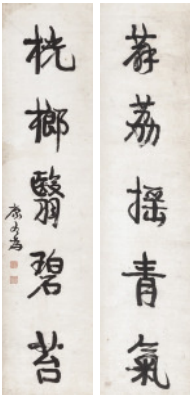 薜荔摇青氣
桄榔翳碧苔
康有為